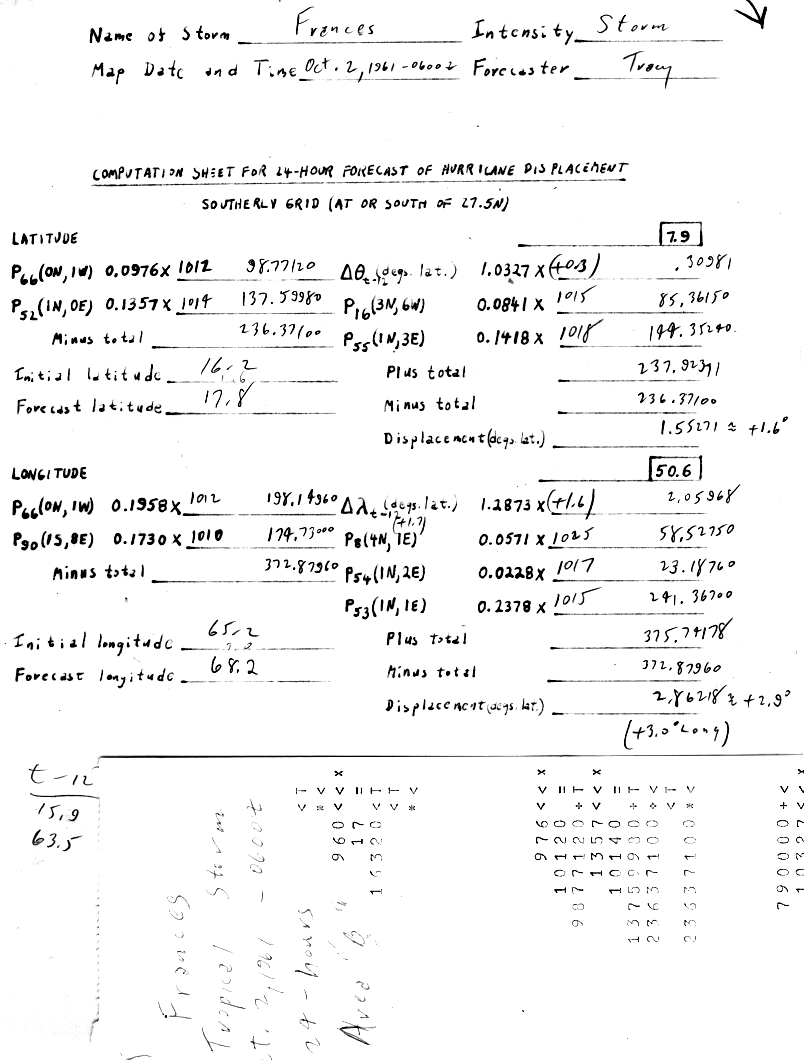 Name of Storm Frances Intensity Storm
Map Date and Time Oct. 2, 1961 - 0600Z Forecaster Tracy
COMPUTATION SHEET FOR 24-HOUR FORECAST OF HURRICANE DISPLACEMENT
SOUTHERLY GRID (AT OR SOUTH OF 27.5N)
LATITUDE 7.9
P66(0N,1W) 0.0976 X 1012 98.77120 Δθt-12 (degs. lat.) 1.0327 X (+0.3) .30981
P52(1N,0E) 0.1357 X 1014 137.59980 P16(3N,6W) 0.0841 X 1015 85.36150
Minus total 236.37100 P55(1N,3E) 0.1418 X 1018 144.35240
Initial latitude 16.2 Plus total 237.92371
1.6
Forecast latitude 17.8 Minus total 236.37100
Displacement (degs. lat.) 1.55271 ≈ +1.6°
LONGITUDE 50.6
P66(0N,1W) 0.1958 X 1012 198.14960 Δλt-12 (degs. lat.) 1.2873 X (+1.6) 2.05968
(+1.7)
P90(1S,8E) 0.1730 X 1010 174.73000 P8(4N,1E) 0.0571 X 1025 58.52750
Minus total 372.87960 P54(1N,2E) 0.0228 X 1017 23.18760
P53(1N,1E) 0.2378 X 1015 241.36700
Initial longitude 65.2 Plus total 375.74178
Forecast longitude 68.2 Minus total 372.87960
Displacement (degs. lat.) 2.86218 ≈ +2.9°
(+3.0° Long)
t-12
15.9
63.5
Frances
Tropical Storm
ct. 2, 1961 - 0600Z
24-hours
Area "B"
<T
*<
960<<x
17=
16320<T
<T
*<
976<<x
10120=
9877120÷T
1357<<x
10140=
13759980÷T
23637100÷<
<T
23637100*<
790000+<